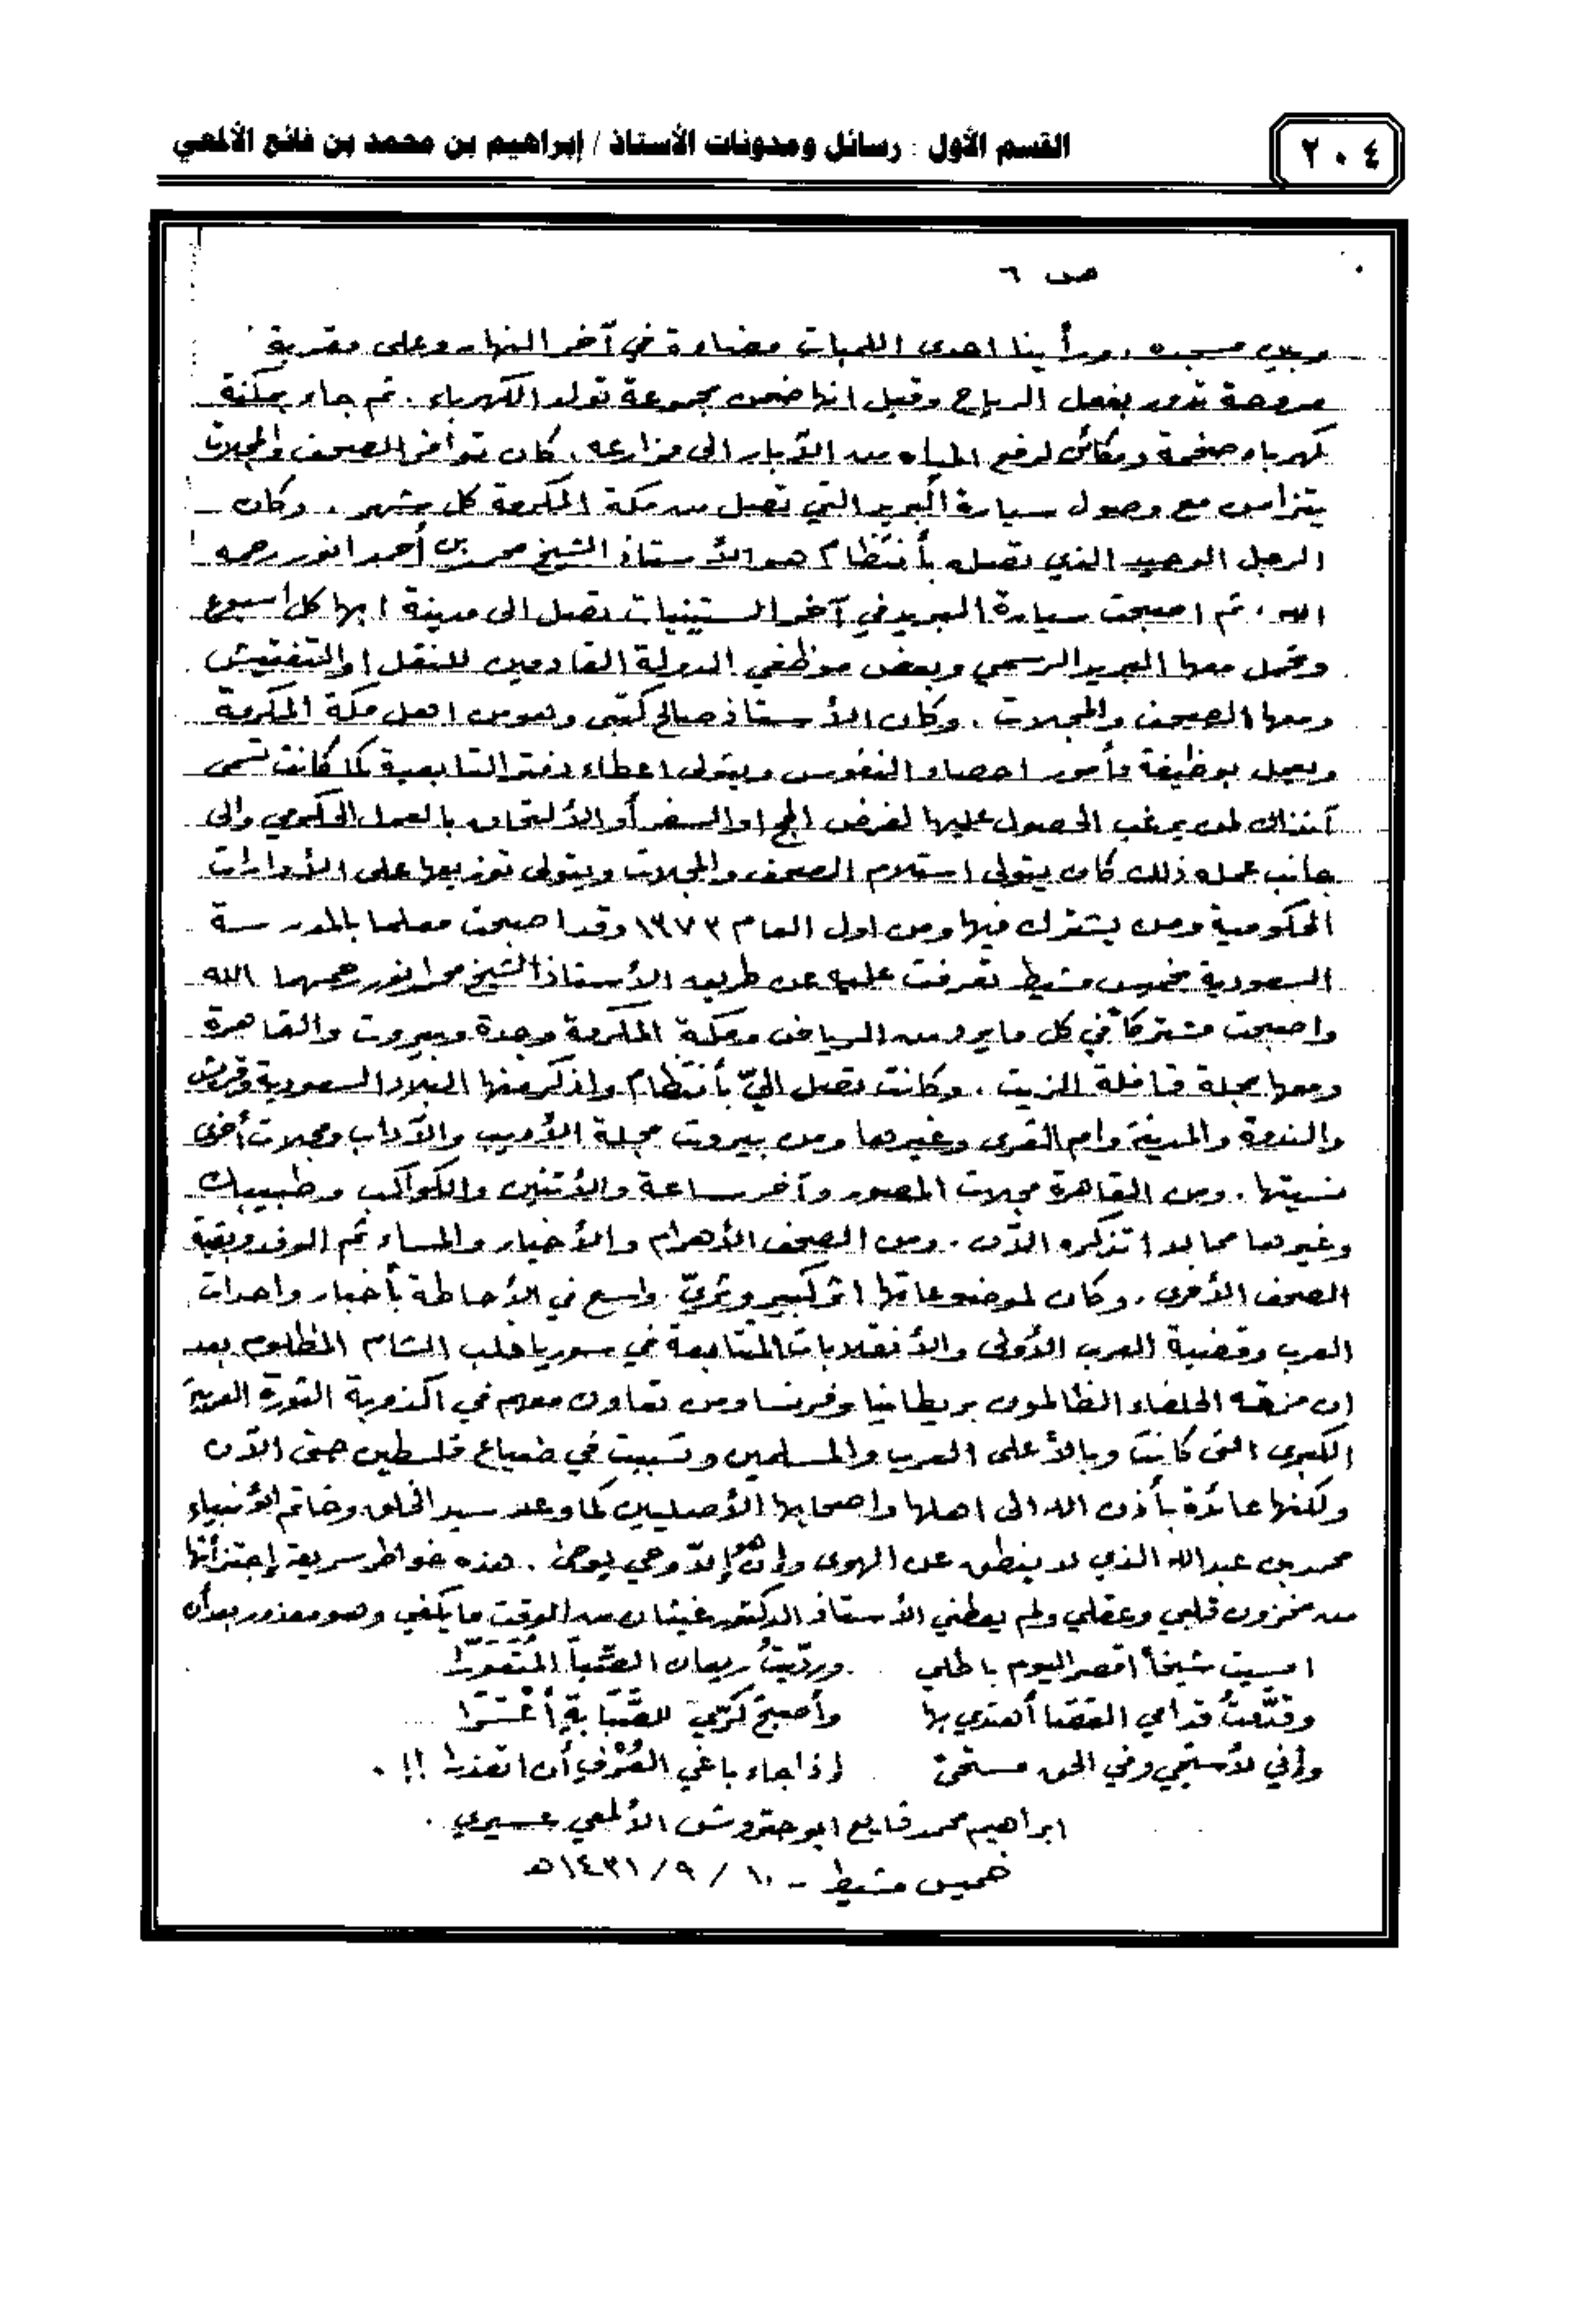 ٢٠٤
القسم الأول : رسائل ومدونات الأستاذ / إبراهيم بن محمد بن فائع الألمعي
ص ٦
وبين مسجده . ورأينا احدى اللمبات مضاءة في آخر النهار وعلى مقربة
مروحة تدور بفعل الرياح وقيل انها ضمن مجموعة تولد الكهرباء . ثم جاء بمكنة
كهرباء ضخمة ومكائن لرفع المياه من الآبار الى مزارعه . كان توافر الصحف والمجلات
يتزامن مع وصول سيارة البريد التي تصل من مكة المكرمة كل شهر . وكان
الرجل الوحيد الذي تصله بأنتظام هو الأستاذ الشيخ محمد بن أحمد انور رحمه
الله . ثم اصبحت سيارة البريد في آخر الستينيات تصل الى مدينة ابها كل اسبوع
وتحمل معها البريد الرسمي وبعض موظفي الدولة القادمين للنقل او التفتيش
ومعها الصحف والمجلات . وكان الأستاذ صالح كتبي وهو من اهل مكة المكرمة
ويعمل بوظيفة مأمور احصاء النفوس ويتولى اعطاء دفتر التابعية كما كانت تسمى
آنذاك لمن يرغب الحصول عليها لغرض الحج او السفر أو الألتحاق بالعمل الحكومي والى
جانب عمله ذلك كان يتولى استلام الصحف والمجلات ويتولى توزيعها على الأدارات
الحكومية ومن يشترك فيها ومن اول العام ١٣٧٣ وقد اصبحت معلما بالمدرسة
السعودية بخميس مشيط تعرفت عليه عن طريق الأستاذ الشيخ محمد انور رحمهما الله
واصبحت مشتركاً في كل ما يرد من الرياض ومكة المكرمة وجدة وبيروت والقاهرة
ومعها مجلة قافلة الزيت . وكانت تصل اليّ بأنتظام واذكر منها البلاد السعودية وقريش
والندوة والمدينة وام القرى وغيرها ومن بيروت مجلة الأديب والآداب ومجلات أخرى
نسيتها . ومن القاهرة مجلات المصور وآخر ساعة والأثنين والكواكب وطبيبك
وغيرها مما لا اتذكره الآن . ومن الصحف الأهرام والأخبار والمساء ثم الوفد وبقية
الصحف الأخرى . وكان لموضوعاتها اثر كبير وثريّ واسع في الأحاطة بأخبار واحداث
العرب وقضية العرب الأولى والأنقلابات المتتابعة في سوريا حلب الشام المظلوم بعد
ان مزقه الحلفاء الظالمون بريطانيا وفرنسا ومن تعاون معهم في اكذوبة الثورة العربية
الكبرى التي كانت وبالاً على العرب والمسلمين وتسببت في ضياع فلسطين حتى الآن
ولكنها عائدة بأذن الله الى اهلها واصحابها الأصليين كما وعد سيد الخلق وخاتم الأنبياء
محمد بن عبدالله الذي لا ينطق عن الهوى وإن هو إلاّ وحي يوحى . هذه خواطر سريعة إجتزأتها
من مخزون قلبي وعقلي ولم يعطني الأستاذ الدكتور غيثان من الوقت ما يكفي وهو معذور بعد أن
امسيت شيخاً اقصر اليوم باطلي وردّيتُ ريعان الصّبا المُتَعَوّرا
وقدّمتُ قدامي العصا أهتدي بها وأصبح كَرّي للصَّبَابةِ أعْسَرَا
وإني لأستحي وفي الحق مستحىً إذا جاء باغي العُرْفِ أن اتعذرا !! .
ابراهيم محمد فايع ابو حتروش الألمعي عسيري .
خميس مشيط - ١٠ / ٩ / ١٤٣١هـ